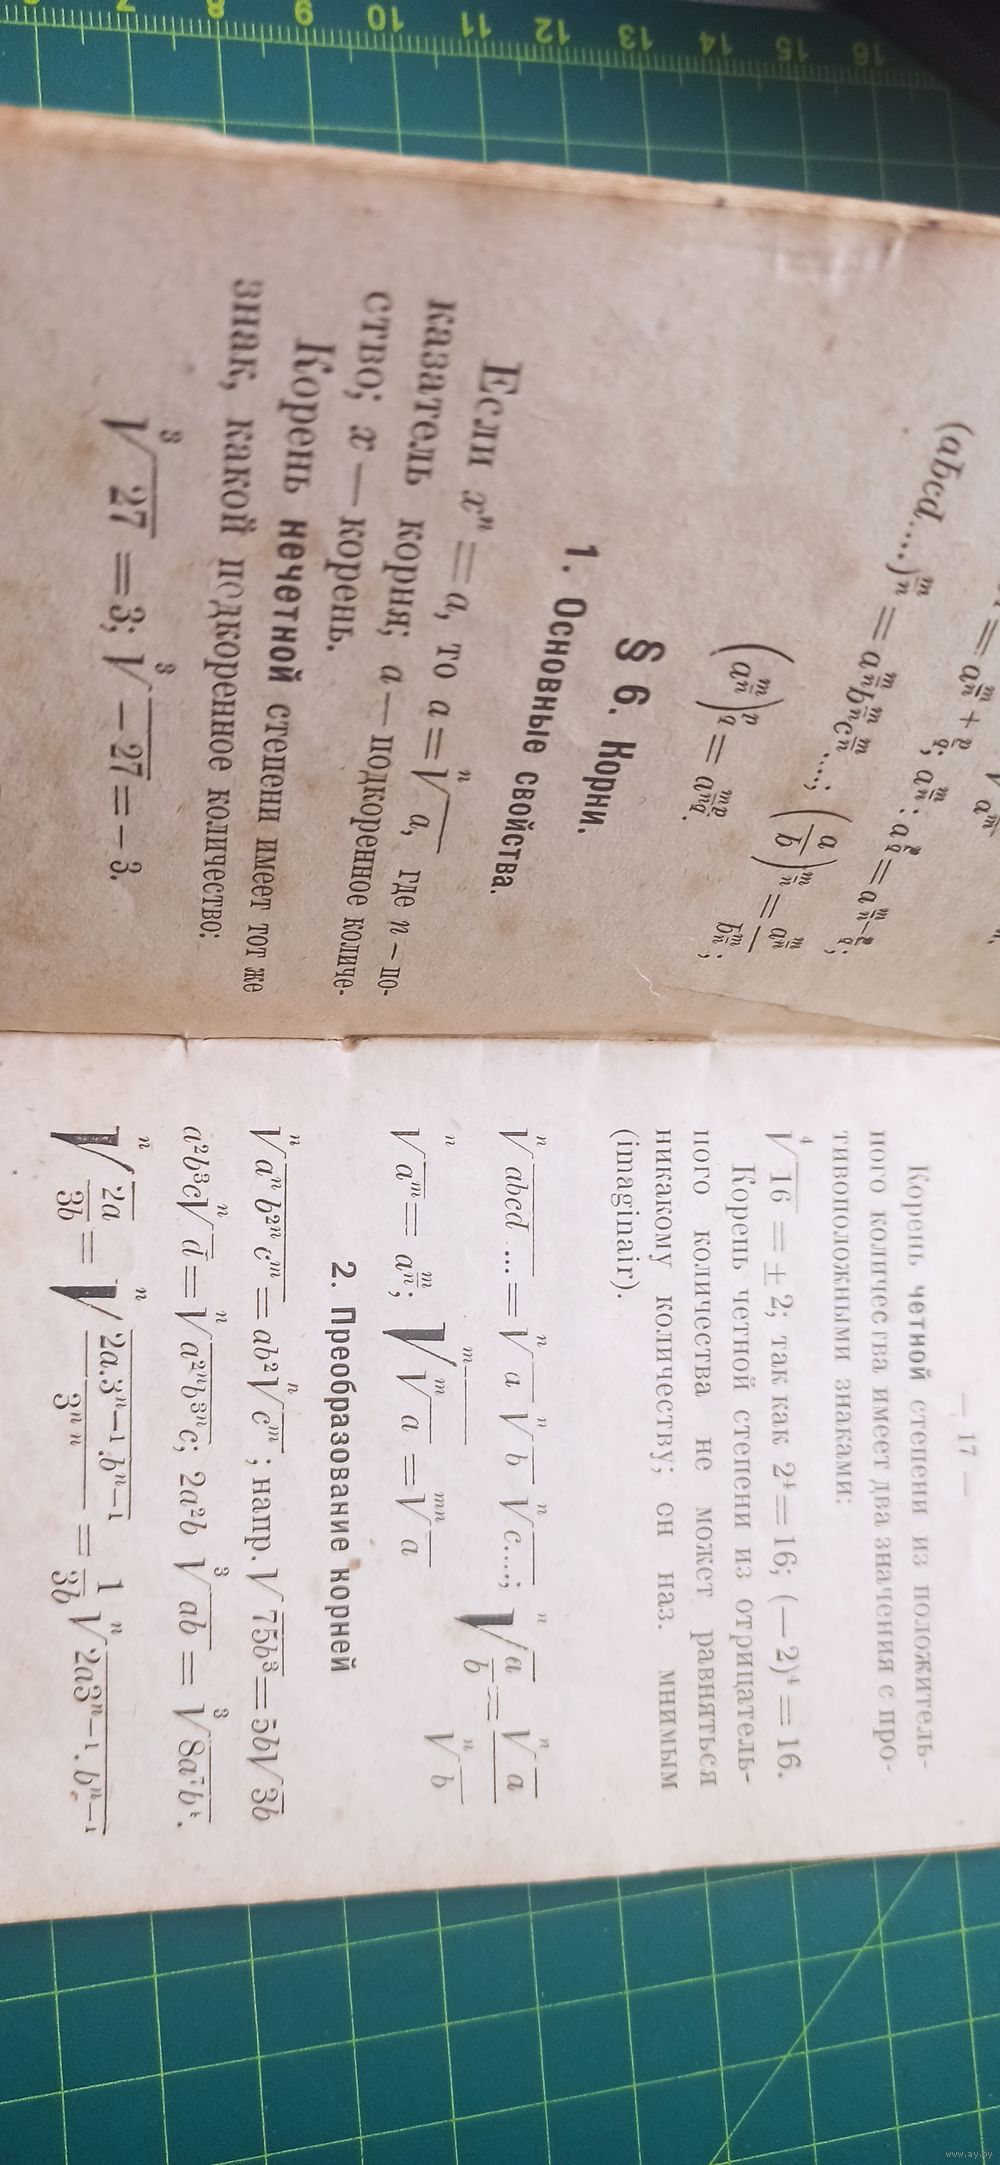 = a^{m/n + p/q}; a^{m/n} : a^{p/q} = a^{m/n − p/q};
(abcd....)^{m/n} = a^{m/n} b^{m/n} c^{m/n}....; (a/b)^{m/n} = a^{m/n} / b^{m/n};
(a^{m/n})^{p/q} = a^{mp/nq}.
§ 6. Корни.
1. Основные свойства.
Если xⁿ = a, то a = ⁿ√a, где n – по-
казатель корня; a — подкоренное количе-
ство; x — корень.
Корень нечетной степени имеет тот же
знак, какой подкоренное количество:
³√27 = 3; ³√−27 = − 3.
— 17 —
Корень четной степени из положитель-
ного количества имеет два значения с про-
тивоположными знаками:
⁴√16 = ± 2; так как 2⁴ = 16; (— 2)⁴ = 16.
Корень четной степени из отрицатель-
ного количества не может равняться
никакому количеству; он наз. мнимым
(imaginair).
ⁿ√abcd ... = ⁿ√a ⁿ√b ⁿ√c....; ⁿ√(a/b) = ⁿ√a / ⁿ√b
ⁿ√aᵐ = a^{m/n}; ᵐ√ⁿ√a = ᵐⁿ√a
2. Преобразование корней
ⁿ√(aⁿ b²ⁿ cᵐ) = ab² ⁿ√cᵐ; напр. √75b³ = 5b√3b
a²b³c ⁿ√d = ⁿ√(a²ⁿb³ⁿc; 2a²b ³√ab = ³√8a⁷b⁴.
ⁿ√(2a/3b) = ⁿ√(2a.3ⁿ⁻¹.bⁿ⁻¹ / 3ⁿ ⁿ) = 1/3b ⁿ√2a3ⁿ⁻¹.bⁿ⁻¹
6 7 8 9 10 11 12 13 14 15 16
www.ay.by